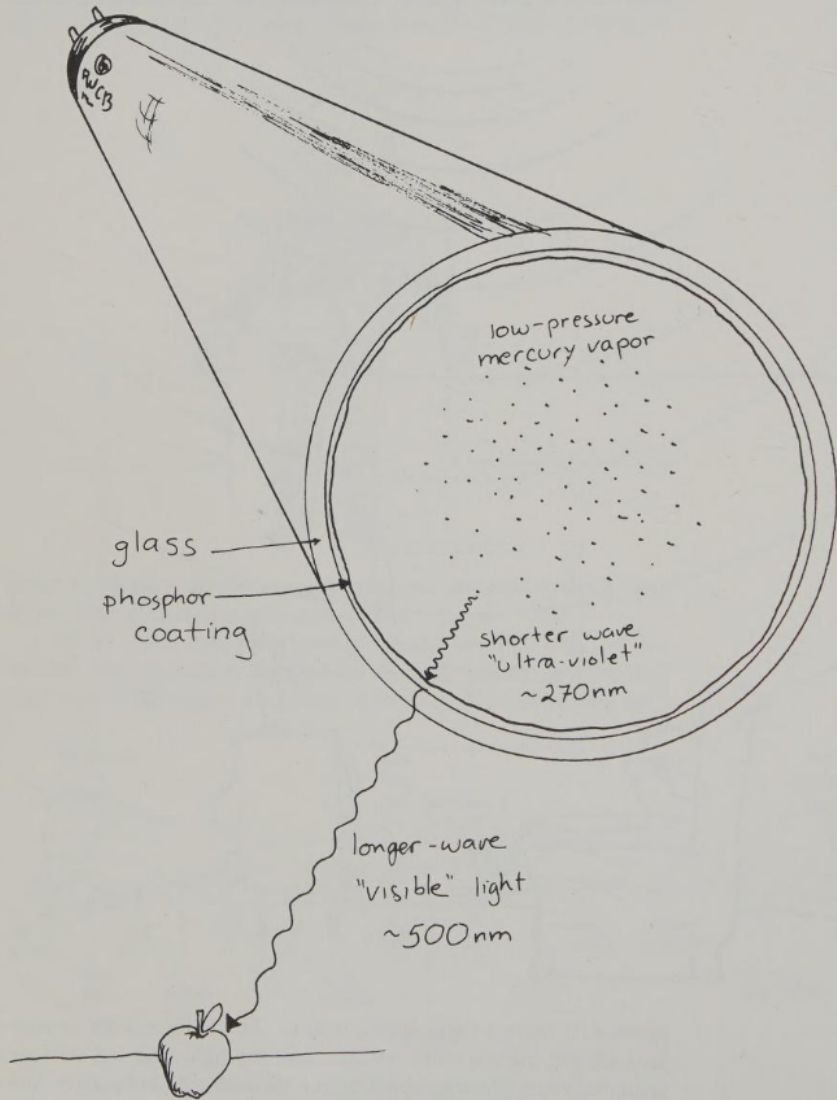 low-pressure
mercury vapor
glass
phosphor
coating
shorter wave
"ultra-violet"
~270nm
longer-wave
"visible" light
~500nm